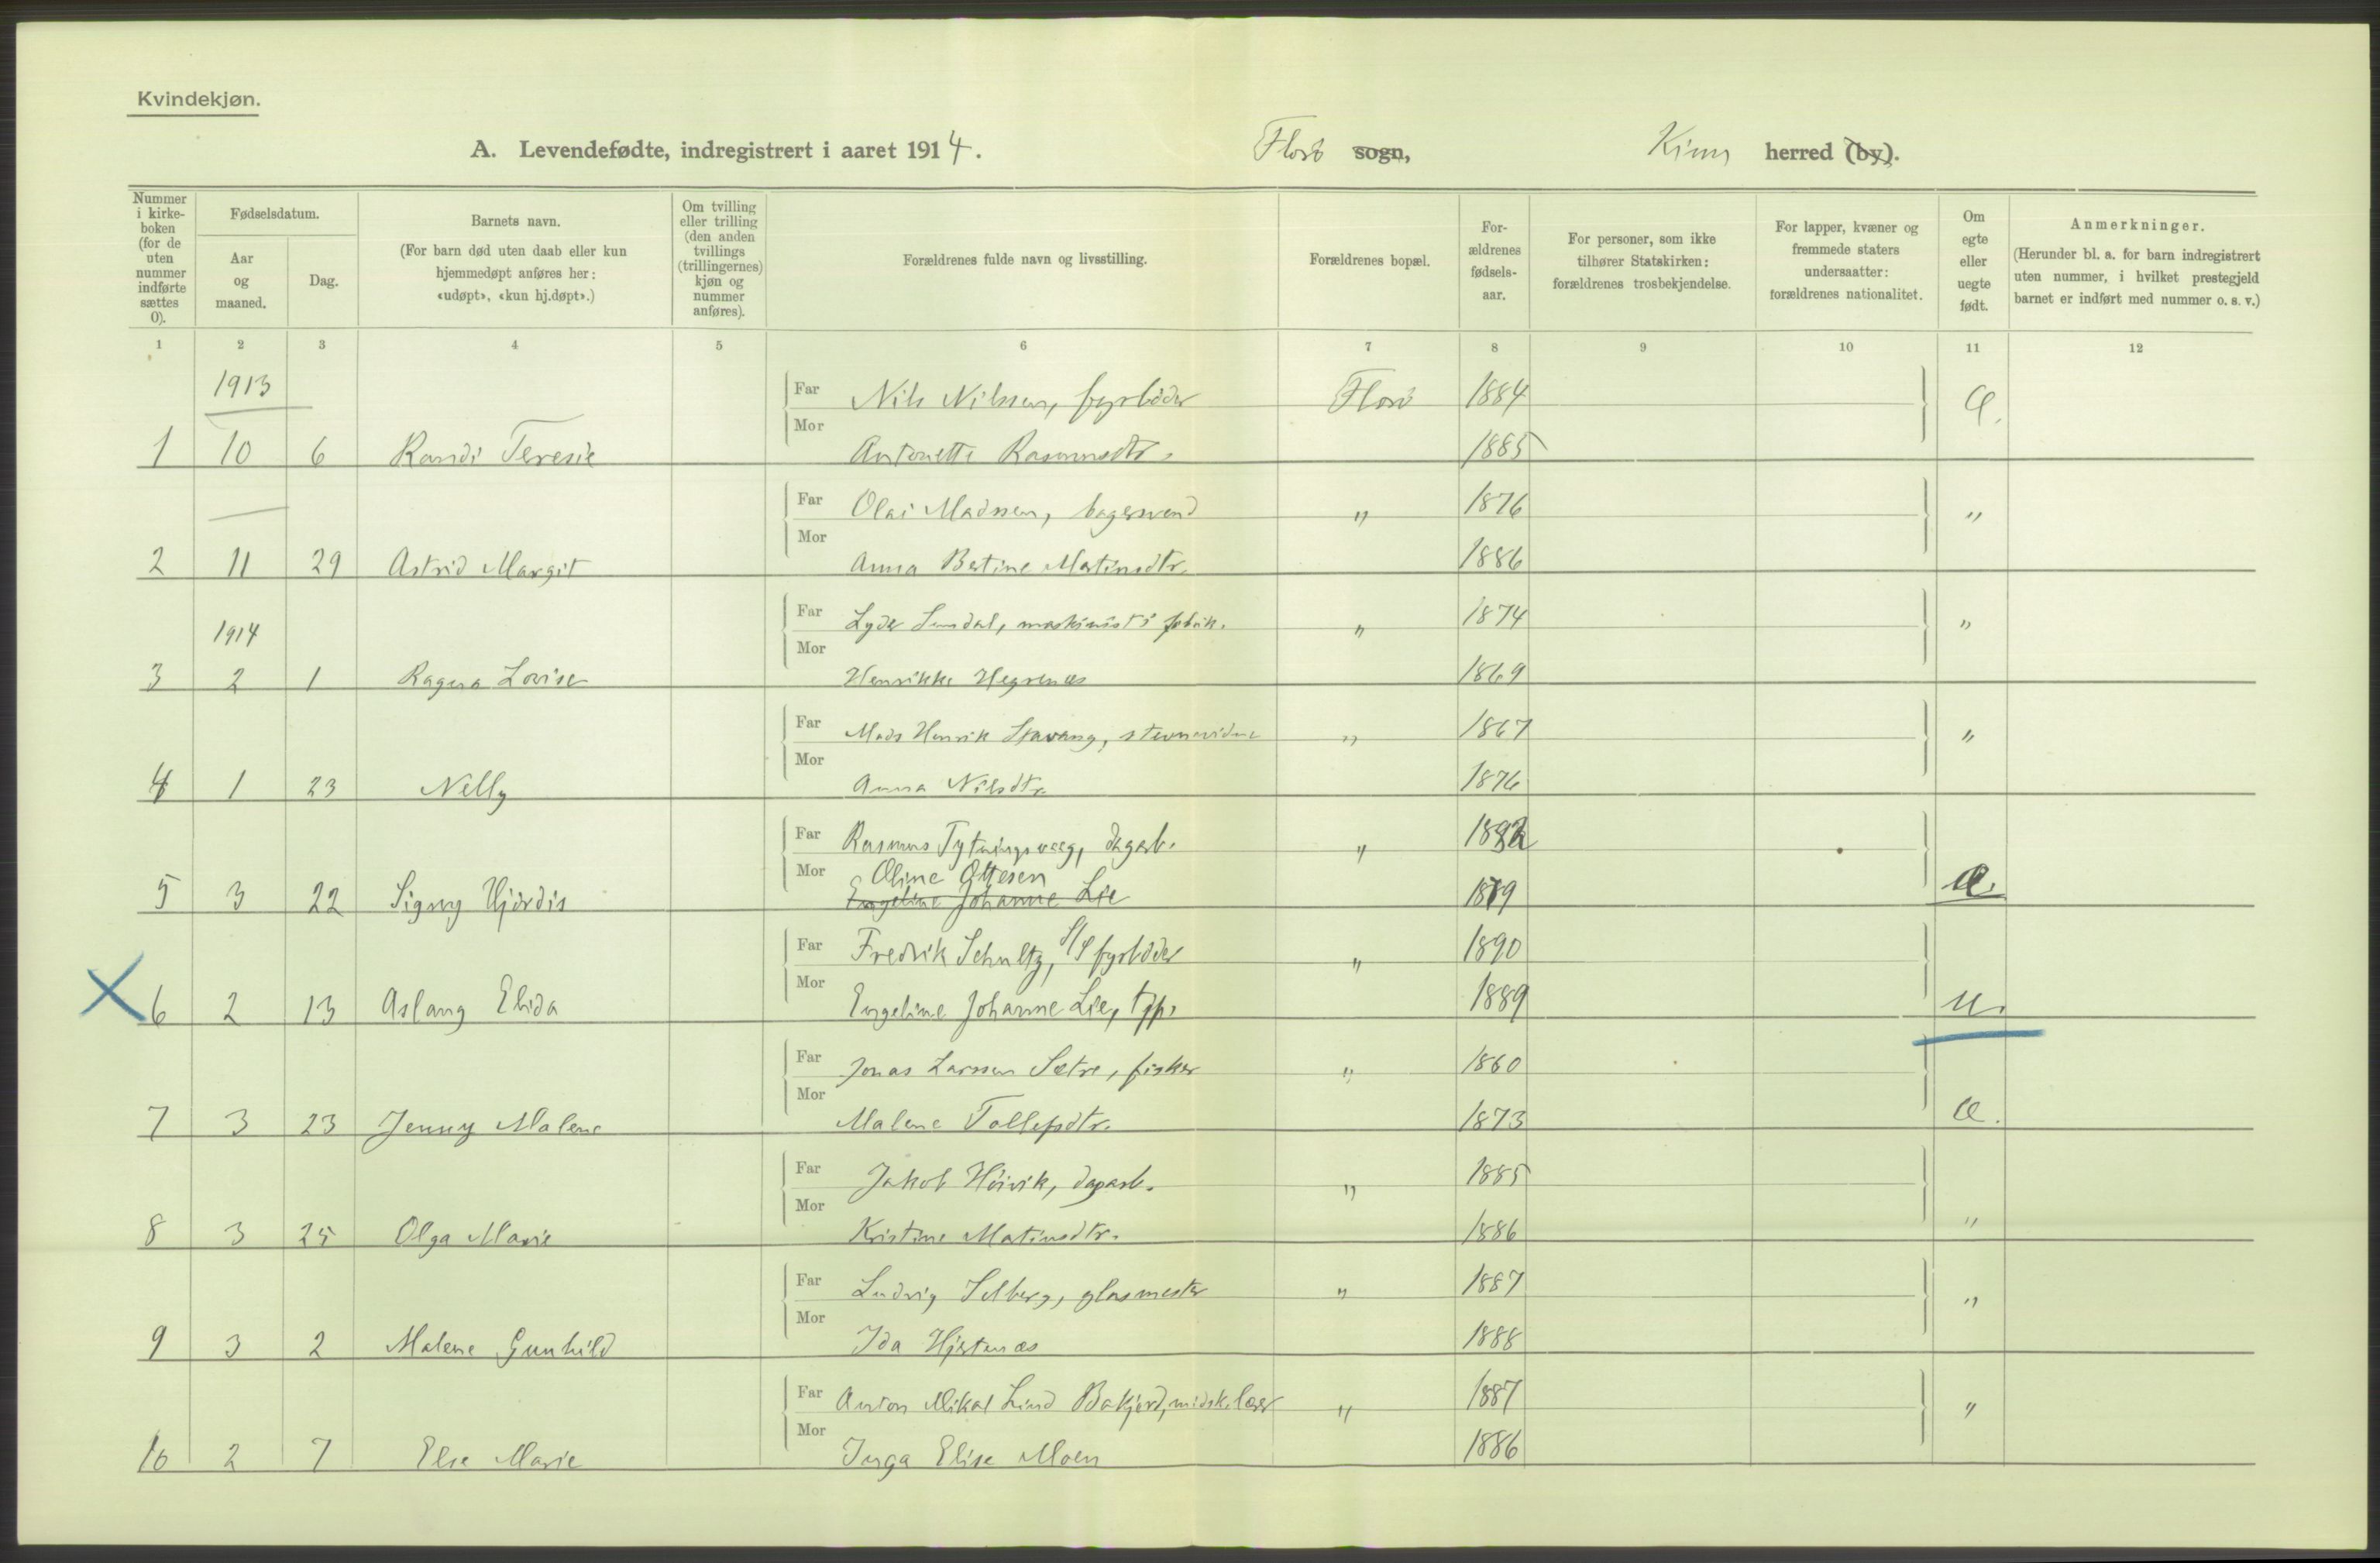 Kvindekjøn.
A. Levendefødte, indregistrert i aaret 1914. Florø sogn, Kinn herred (by).
Nummer i kirkeboken (for de uten nummer indførte sættes 0).
Fødselsdatum.
Aar og maaned.
Dag.
Barnets navn.
(For barn død uten daab eller kun hjemmedøpt anføres her: «udøpt», «kun hj.døpt».)
Om tvilling eller trilling (den anden tvillings (trillingernes) kjøn og nummer anføres).
Forældrenes fulde navn og livsstilling.
Forældrenes bopæl.
For-ældrenes fødsels-aar.
For personer, som ikke tilhører Statskirken: forældrenes trosbekjendelse.
For lapper, kvæner og fremmede staters undersaatter: forældrenes nationalitet.
Om egte eller uegte født.
Anmerkninger.
(Herunder bl. a. for barn indregistrert uten nummer, i hvilket prestegjeld barnet er indført med nummer o. s. v.)
1 2 3 4 5 6 7 8 9 10 11 12
1913 Far Nils Nilssen, fyrbøder Florø 1884 Æ.
1 10 6 Randi Teresie Mor Antonette Rasmusdtr. 1885
Far Olai Madssen, bagersvend " 1876 "
2 11 29 Astrid Margit Mor Anna Bertine Martinsdtr. 1886
1914 Far Lyder Sundal, maskinist i fabrik. " 1874 "
3 2 1 Ragna Lovise Mor Henrikke Hegrenæs 1869
Far Mads Henrik Stavang, stevnevidne " 1867 "
4 1 23 Nelly Mor Anna Nilsdtr. 1876
Far Rasmus Tytningsvaag, dagarb. " 1882
Oline Ottesen
5 3 22 Signy Hjørdis Mor Engeline Johanne Lie 1879 Æ.
Far Fredrik Schultz, S/S fyrbøder " 1890
6 2 13 Aslaug Elida Mor Engeline Johanne Lie, tjp. 1889 U.
Far Jonas Larssen Sætre, fisker " 1860
7 3 23 Jenny Malene Mor Malene Tollefsdtr. 1873 Æ.
Far Jakob Høivik, dagarb. " 1885
8 3 25 Olga Marie Mor Kristine Matinsdtr. 1886 "
Far Ludvig Solberg, glasmester " 1887 "
9 3 2 Malene Gunhild Mor Ida Hjertenæs 1888
Far Anton Mikal Lind Bakjord, midsk.lærer " 1887 "
10 2 7 Else Marie Mor Inga Elise Moen 1886